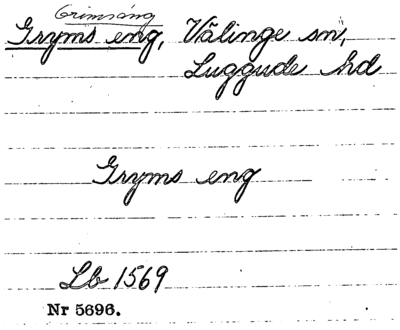 Grimsäng
Gryms eng, Välinge sn,
Luggude hd
Gryms eng
Lb 1569
Nr 5696.